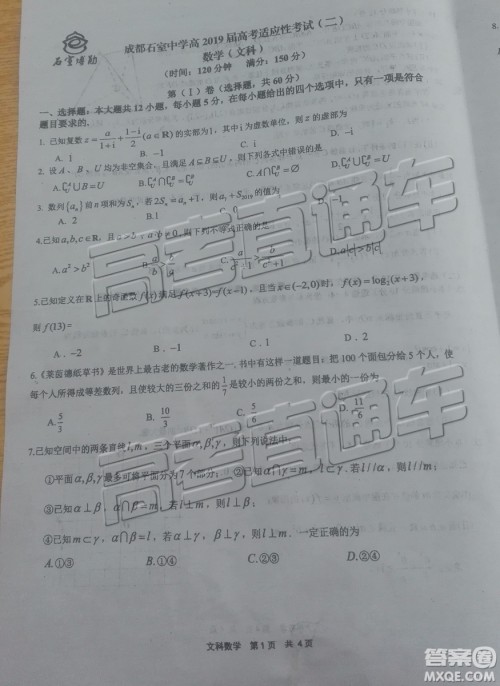 石室博勋
成都石室中学高2019届高考适应性考试（二）
数学（文科）
（时间：120分钟 满分：150分）
第（Ⅰ）卷（选择题，共60分）
一、选择题：本大题共12小题，每小题5分，在每小题给出的四个选项中，只有一项是符合
题目要求的.
1. 已知复数z=a/(1+i)+(1-i)/2(a∈R)的实部为1，其中i为虚数单位，则a=
A. 1 B. -1 C. i D. -i
2. 设A、B、U均为非空集合，且满足A⊆B⊆U，则下列各式中错误的是
3. 数列{aₙ}的前n项和为Sₙ，若2Sₙ=aₙ+1，则a₁+S₂₀₁₉的值为
A. 2 B.1 C.
4.已知a,b,c∈R，且
A.a²>b² D.a|c|>b|c|
5.已知定义在R上的奇函数f(x)满足f(x+3)=f(x-1)，且当x∈(-2,0)时，f(x)=log₂(x+3)，
则f(13)=
A. -2 B. -1 C. 1 D. 2
6.《莱茵德纸草书》是世界上最古老的数学著作之一.书中有这样一道题目：把100个面包分给5人，使
每个人所得成等差数列，且使较大的三份之和的1/7是较小的两份之和，则最小的一份为
A.5/3 B. 10/3 C. 5/6 D. 11/6
7.已知空间中的两条直线l,m，三个平面α,β,γ，则下列说法中，
①平面α,β,γ最多可将平面分为7个部分； ②已知α∩γ=m，α∩β=l. 若l//α，则l//m.
③已知α⊥β，α∩β=m，若l⊥m，则l⊥β.
④已知m⊂γ，α∩β=l，若α⊥γ，β⊥γ，则l⊥m. 一定正确的为
A.①③ B.①④ C.②③ D.②④
文科数学 第1页 共4页
8.
高考直通车
高考直通车
答案圈